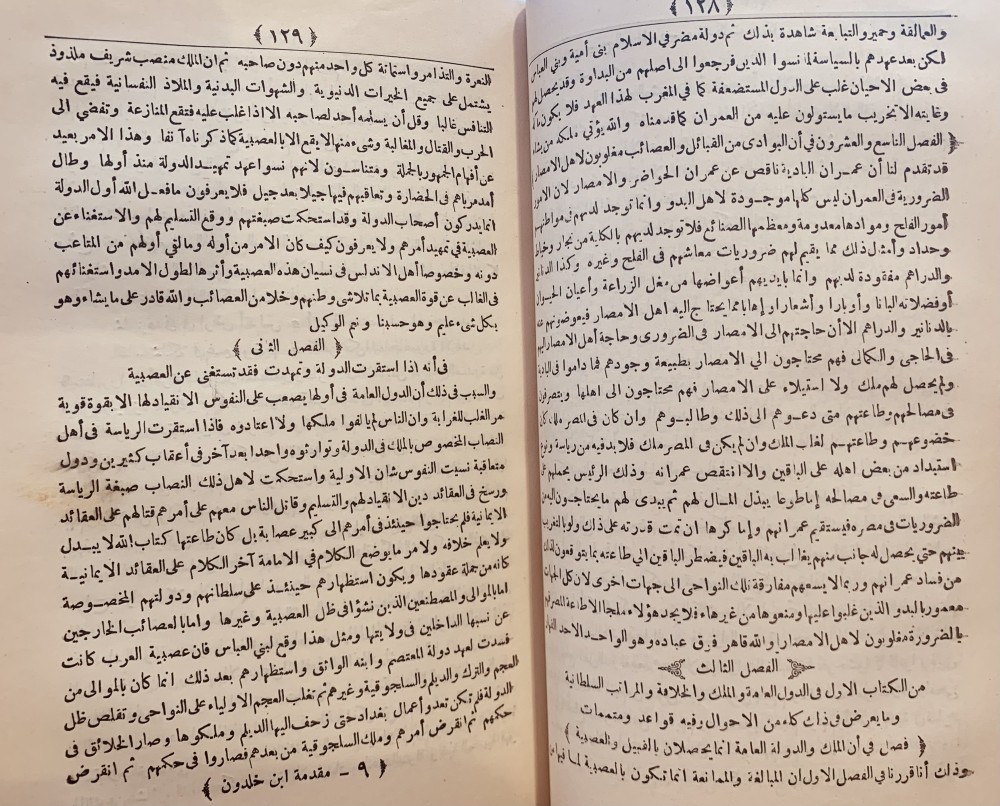 ﴿ ١٢٨ ﴾
والعمالقة وحمير والتبابعة شاهدة بذلك ثم دولة مضر في الاسلام بنى أمية وبني العباس
لكن بعد عهدهم بالسياسة لما نسوا الدين فرجعوا الى أصلهم من البداوة وقد يحصل لهم
فى بعض الاحيان غلب على الدول المستضعفة كما فى المغرب لهذا العهد فلا يكون مآله
وغايته الاتخريب ما يستولون عليه من العمران كما قدمناه والله يؤتي ملكه من يشاء
﴿ الفصل التاسع والعشرون في أن البوادى من القبائل والعصائب مغلوبون لاهل الامصار
قد تقدم لنا أن عمـران البادية ناقص عن عمران الحواضر والامصار لان الامور
الضرورية فى العمران ليس كلها موجـودة لاهل البدو وانما توجد لديهم في مواطنهم
أمور الفلح وموادها معدومة ومعظمها الصنائع فلا توجد لديهم بالكلية من نجار وخياط
وحداد وأمثال ذلك مما يقيم لهم ضروريات معاشهم فى الفلح وغيره وكذا الدنانير
والدراهم مفقودة لديهم وانما بايديهم أعواضها من مغل الزراعة وأعيان الحيوان
أو فضلاته ألبانا وأوبارا وأشعارا وإهابا مما يحتاج اليه اهل الامصار فيعوضونهم عنه
بالدنانير والدراهم الا أن حاجتهم الى الامصار فى الضرورى وحاجة أهل الامصار اليهم
فى الحاجى والكمالى فهم محتاجون الى الامصار بطبيعة وجودهم فما داموا فى البادية
ولم يحصل لهم ملك ولا استيلاء على الامصار فهم محتاجون الى اهلها ويتصرفون
فى مصالحهم وطاعتهم متى دعـوهم الى ذلك وطالبـوهم وان كان فى المصر ملك كان
خضوعهـم وطاعتهـم لغلب الملك وان لم يكن فى المصر ملك فلا بد فيه من رياسة ونوع
استبداد من بعض اهله على الباقين والا انتقض عمرانه وذلك الرئيس يحملهم على
طاعته والسعى فى مصالحه إما طوعا ببذل المـال لهم ثم يبدى لهم ما يحتاجون اليه من
الضروريات فى مصره فيستقيم عمرانهم وإما كرها ان تمت قدرته على ذلك ولو بالتغريب
بينهم حتى يحصل له جانب منهم يغالب به الباقين فيضطر الباقين الى طاعته بما يتوقعون لذلك
من فساد عمرانهم وربما لا يسعهم مفارقة تلك النواحى الى جهات اخرى لان كل الجهات
معمور بالبدو الذين غلبوا عليها ومنعوها من غيرها فلا يجد هؤلاء ملجأ الا طاعة المصر فهم
بالضرورة مغلوبون لاهل الامصار والله قاهر فوق عباده وهو الواحد الاحد القهار
الفصل الثالث
من الكتاب الاول فى الدول العامة والملك والخلافة والمراتب السلطانية
وما يعرض فى ذلك كله من الاحوال وفيه قواعد ومتممات
﴿ فصل في أن الملك والدولة العامة انما يحصلان بالقبيل والعصبية ﴾
وذلك أنا قررنا فى الفصل الاول ان المبالغة والممانعة انما تكون بالعصبية لما فيها من
﴿ ١٢٩ ﴾
النعرة والتذامر واستماتة كل واحد منهم دون صاحبه ثم ان الملك منصب شريف ملذوذ
يشتمل على جميع الخيرات الدنيوية والشهوات البدنية والملاذ النفسانية فيقع فيه
التنافس غالبا وقل أن يسلمه أحد لصاحبه الا اذا غلب عليه فتقع المنازعة وتفضى الى
الحرب والقتال والمغالبة وشىء منها لا يقع الا بالعصبية كما ذكرناه آنفا وهذا الامر بعيد
عن أفهام الجمهور بالجملة ومتناسـون لانهم نسوا عهد تمهيـد الدولة منذ أولها وطال
أمد مرباهم فى الحضارة وتعاقبهم فيها جيلا بعد جيل فلا يعرفون ما فعـل الله أول الدولة
انما يدركون أصحاب الدولة وقد استحكمت صبغتهم ووقع التسليم لهم والاستغناء عن
العصبية فى تمهيد أمرهم ولا يعرفون كيف كان الامر من أوله وما لقي أولهم من المتاعب
دونه وخصوصا أهل الاندلس فى نسيان هذه العصبية وأثرها لطول الامد واستغنائهم
فى الغالب عن قوة العصبية بما تلاشى وطنهم وخلا من العصائب والله قادر على ما يشاء وهو
بكل شىء عليم وهو حسبنا ونعم الوكيل
﴿ الفصل الثانى ﴾
فى أنه اذا استقرت الدولة وتمهدت فقد تستغنى عن العصبية
والسبب فى ذلك أن الدول العامة فى أولها يصعب على النفوس الانقياد لها الا بقوة قوية
من الغلب للغرابة وان الناس لم يألفوا ملكها ولا اعتادوه فاذا استقرت الرياسة فى أهل
النصاب المخصوص بالملك فى الدولة وتوارثوه واحدا بعد آخر فى أعقاب كثيرين ودول
متعاقبة نسيت النفوس شان الاولية واستحكمت لاهل ذلك النصاب صبغة الرياسة
ورسخ فى العقائد دين الانقياد لهم والتسليم وقاتل الناس معهم على أمرهم قتالهم على العقائد
الايمانية فلم يحتاجوا حينئذ فى أمرهم الى كبير عصابة بل كأن طاعتها كتاب الله لا يبـدل
ولا يعلم خلافه ولامر ما يوضع الكلام في الامامة آخر الكلام على العقائد الايمانيـة
كأنه من جملة عقودها ويكون استظهارهم حينئـذ على سلطانهم ودولتهم المخصـوصة
اما بالموالى والمصطنعين الذين نشؤا فى ظل العصبية وغيرها واما بالعصائب الخارجين
عن نسبها الداخلين فى ولايتها ومثل هذا وقع لبنى العباس فان عصبية العرب كانت
فسدت لعهد دولة المعتصم وابنه الواثق واستظهارهم بعد ذلك انما كان بالموالى من
العجم والترك والديلم والسلجوقية وغيرهم ثم تغلب العجم الاولياء على النواحى وتقلص ظل
الدولة فلم تكن تعدو أعمال بغداد حتى زحف اليها الديلم وملكوها وصار الخلائق فى
حكمهم ثم انقرض أمرهم وملك السلجوقية من بعدهم فصاروا فى حكمهم ثم انقرض
﴿ ٩ ـ مقدمة ابن خلدون ﴾